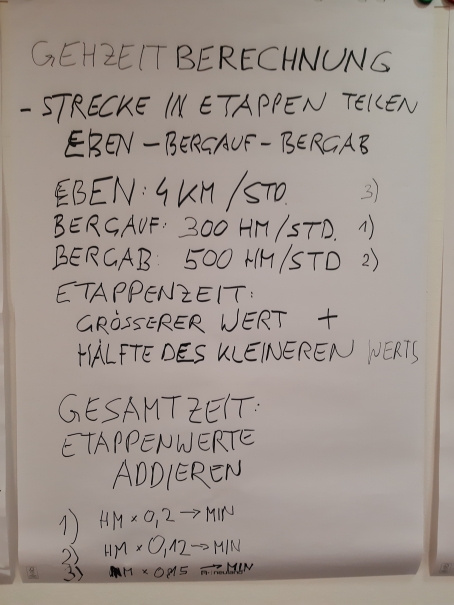 GEHZEITBERECHNUNG
- STRECKE IN ETAPPEN TEILEN
EBEN - BERGAUF - BERGAB
EBEN: 4 KM / STD. 3)
BERGAUF: 300 HM / STD. 1)
BERGAB: 500 HM / STD 2)
ETAPPENZEIT:
GRÖSSERER WERT +
HÄLFTE DES KLEINEREN WERTS
GESAMTZEIT:
ETAPPENWERTE
ADDIEREN
1) HM × 0,2 → MIN
2) HM × 0,12 → MIN
3) M × 0,015 → MIN